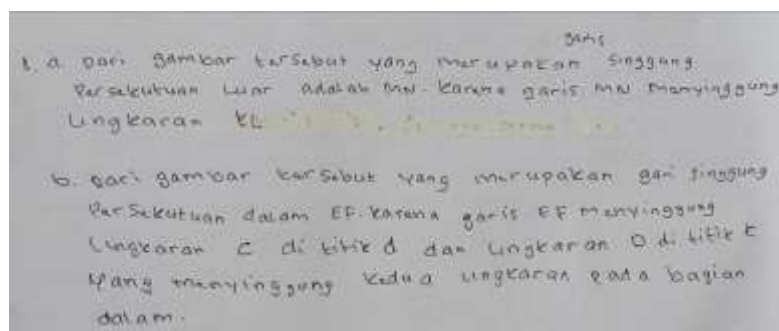 garis
1. a Dari gambar tersebut yang merupakan singgung
Persekutuan Luar adalah MN. karena garis MN menyinggung
Lingkaran KL
b. Dari gambar tersebut yang merupakan gari singgung
Persekutuan dalam EF. karena garis EF menyinggung
Lingkaran C di titik d dan Lingkaran D di titik E
yang menyinggung kedua Lingkaran pada bagian
dalam.